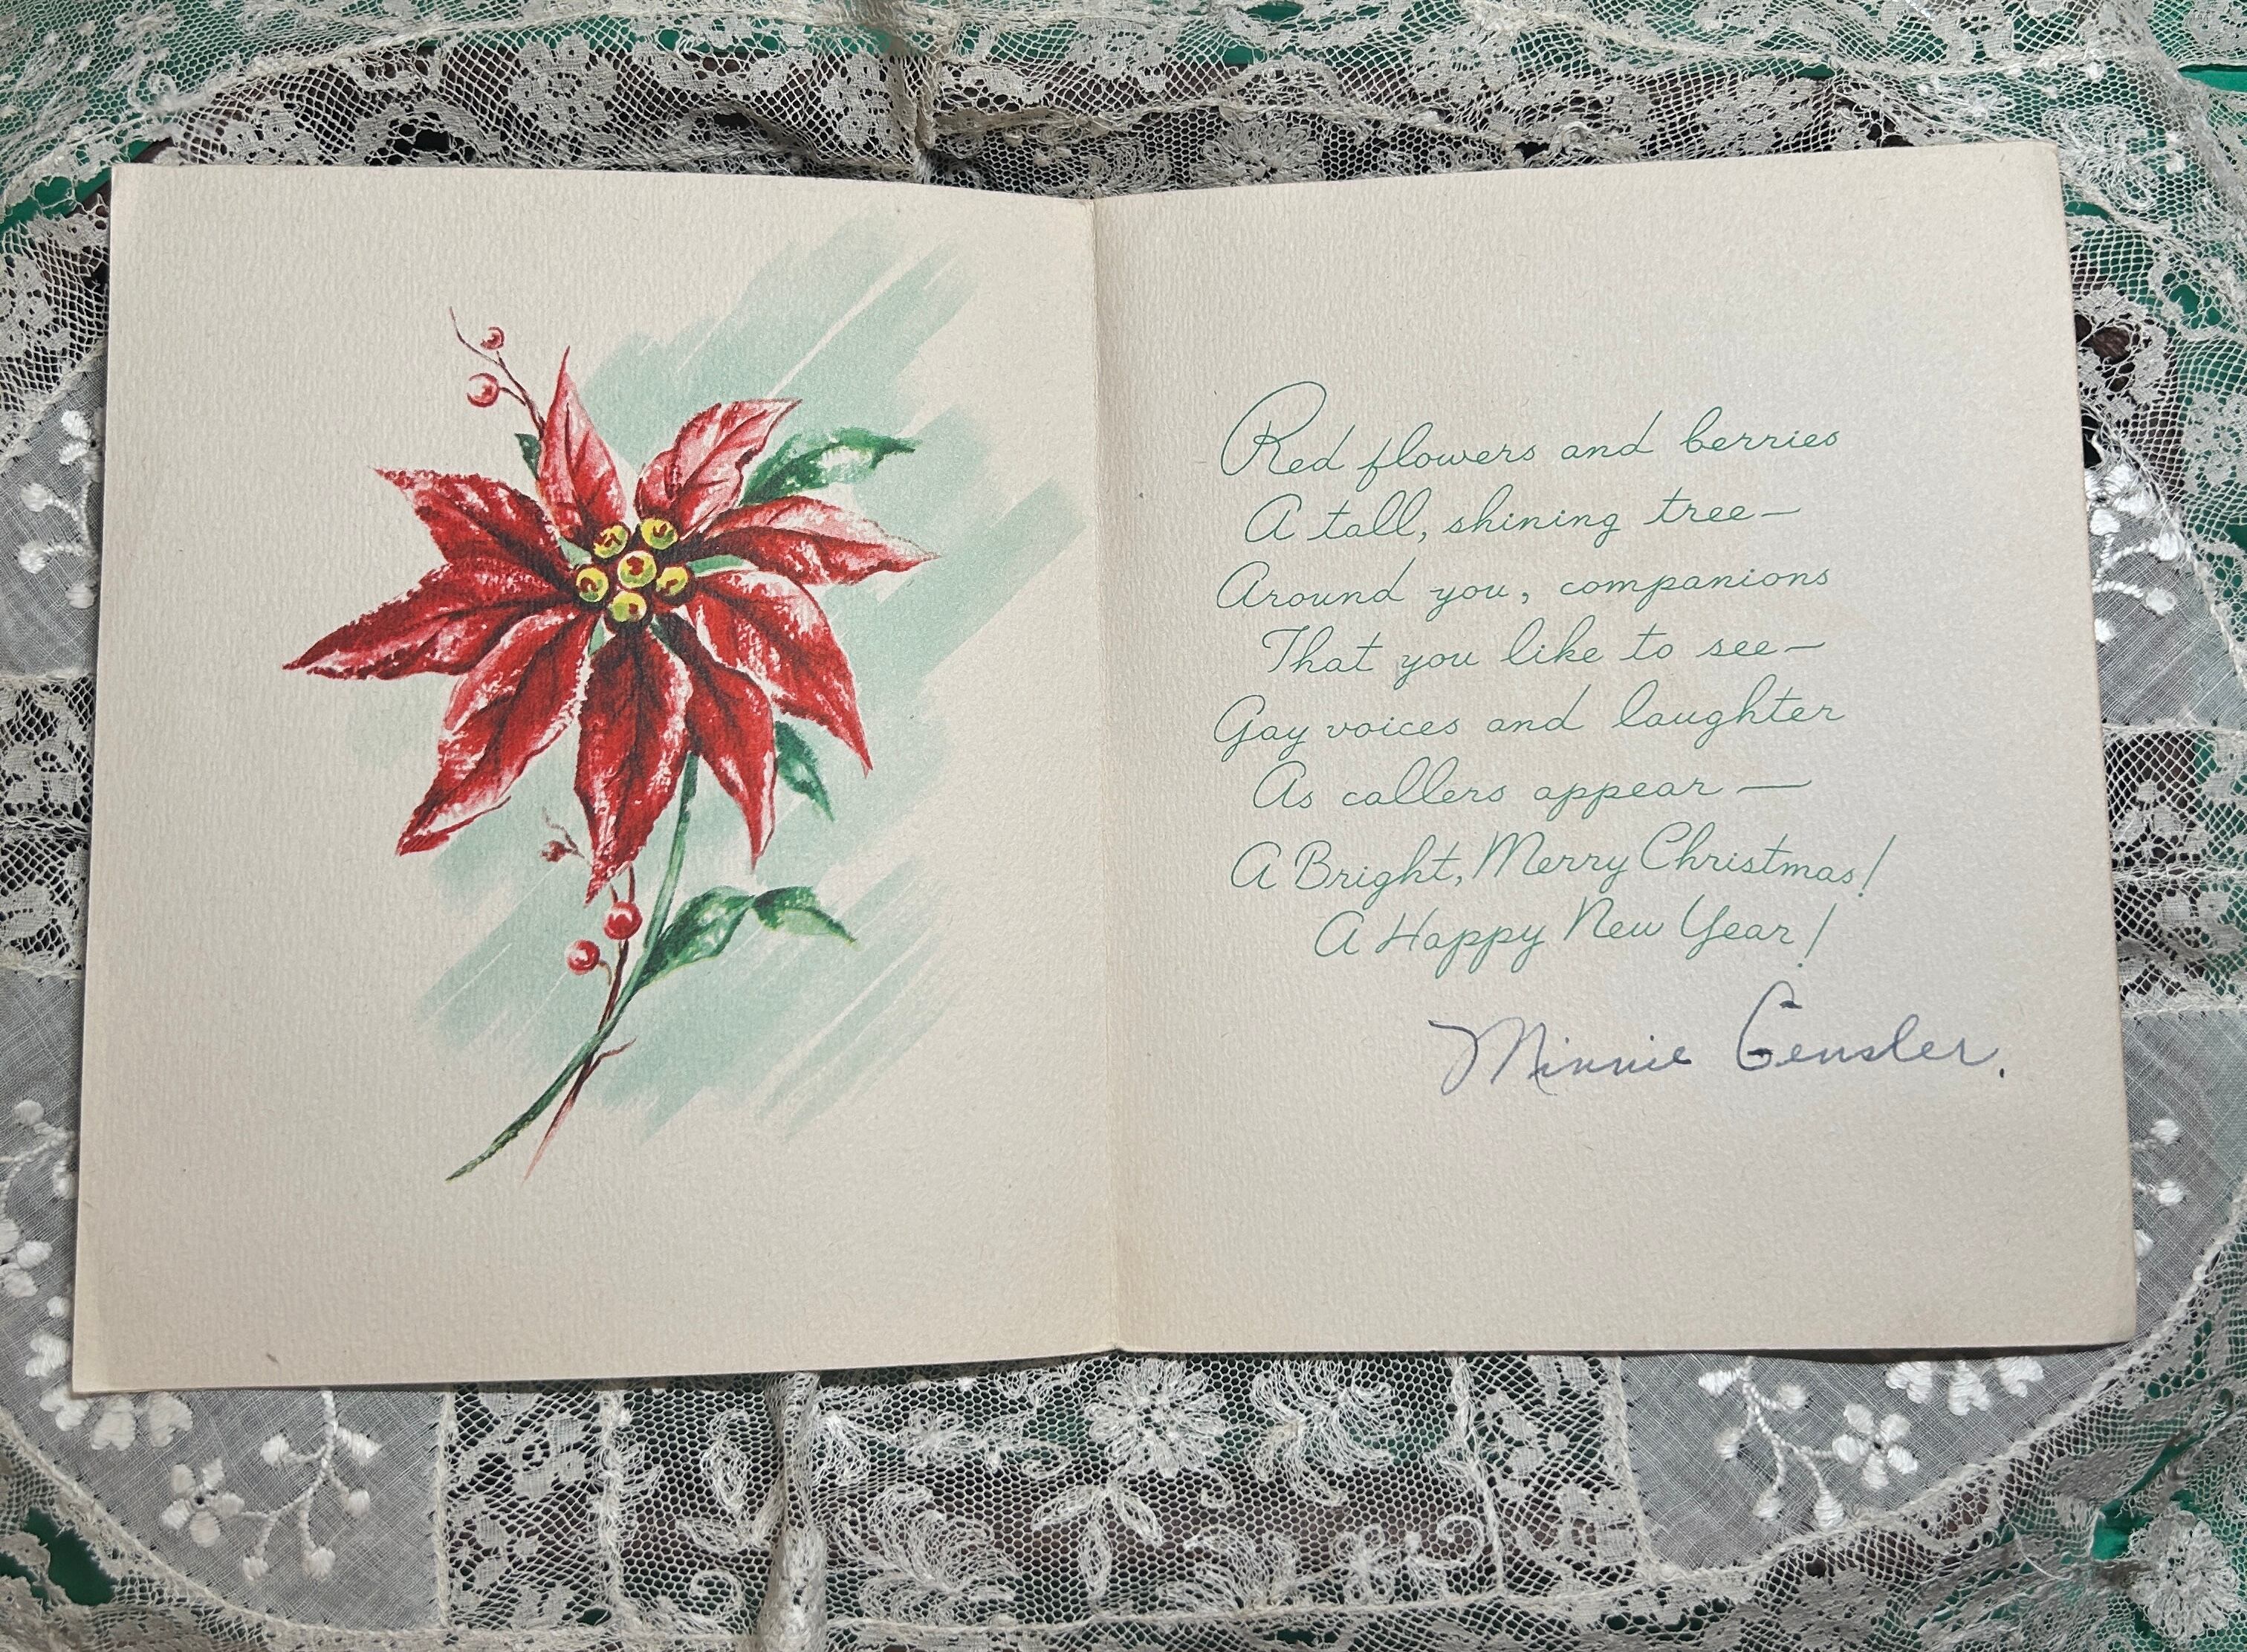 Red flowers and berries
A tall, shining tree—
Around you, companions
That you like to see—
Gay voices and laughter
As callers appear—
A Bright, Merry Christmas!
A Happy New Year!
Minnie Gensler.